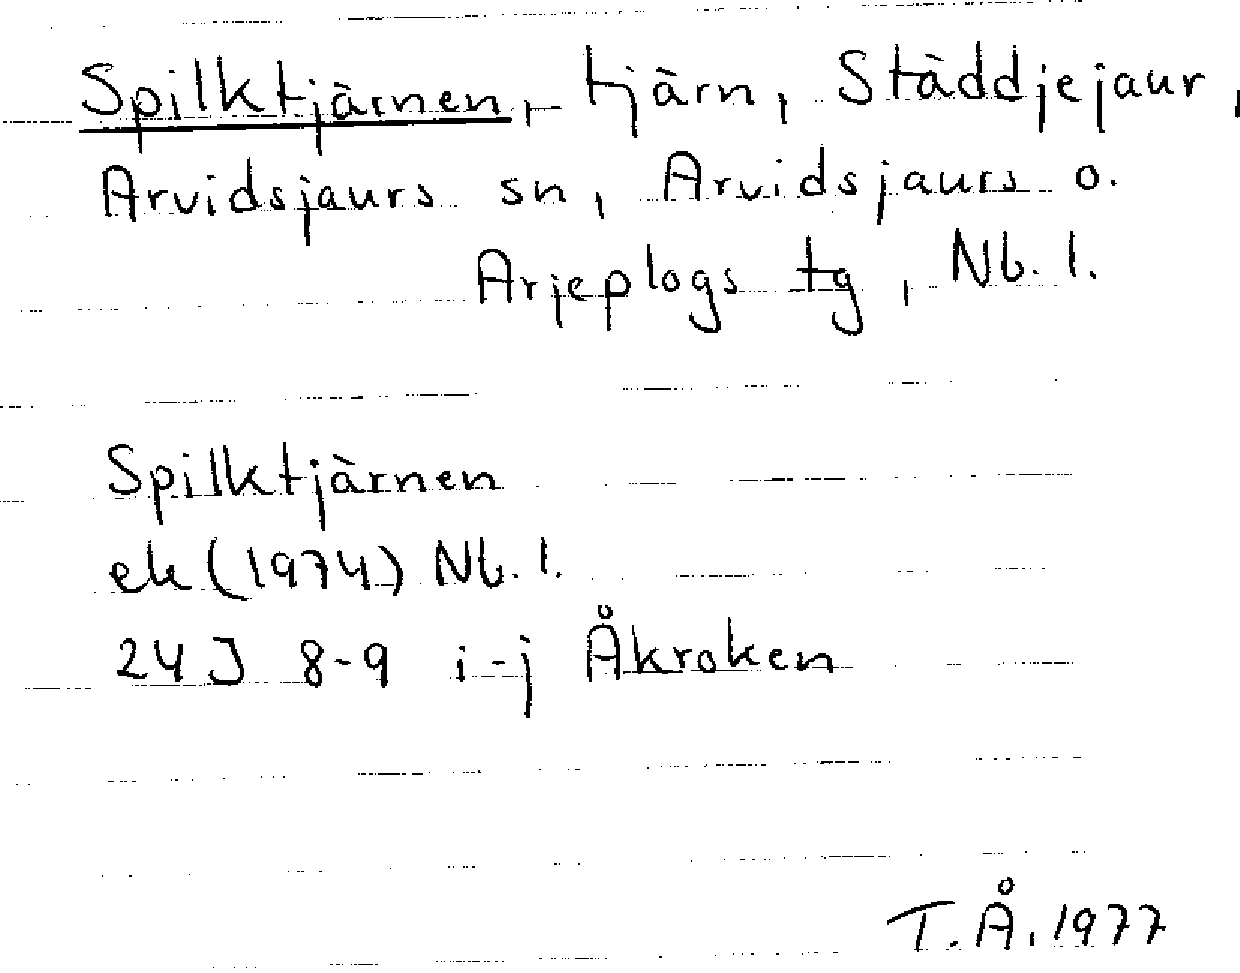 Spilktjärnen, tjärn, Ståddjejaur,
Arvidsjaurs sn, Arvidsjaurs o.
Arjeplogs tg, Nb. l.
Spilktjärnen
ek (1974) Nb. l.
24 J 8-9 i-j Åkroken
T.Å. 1977